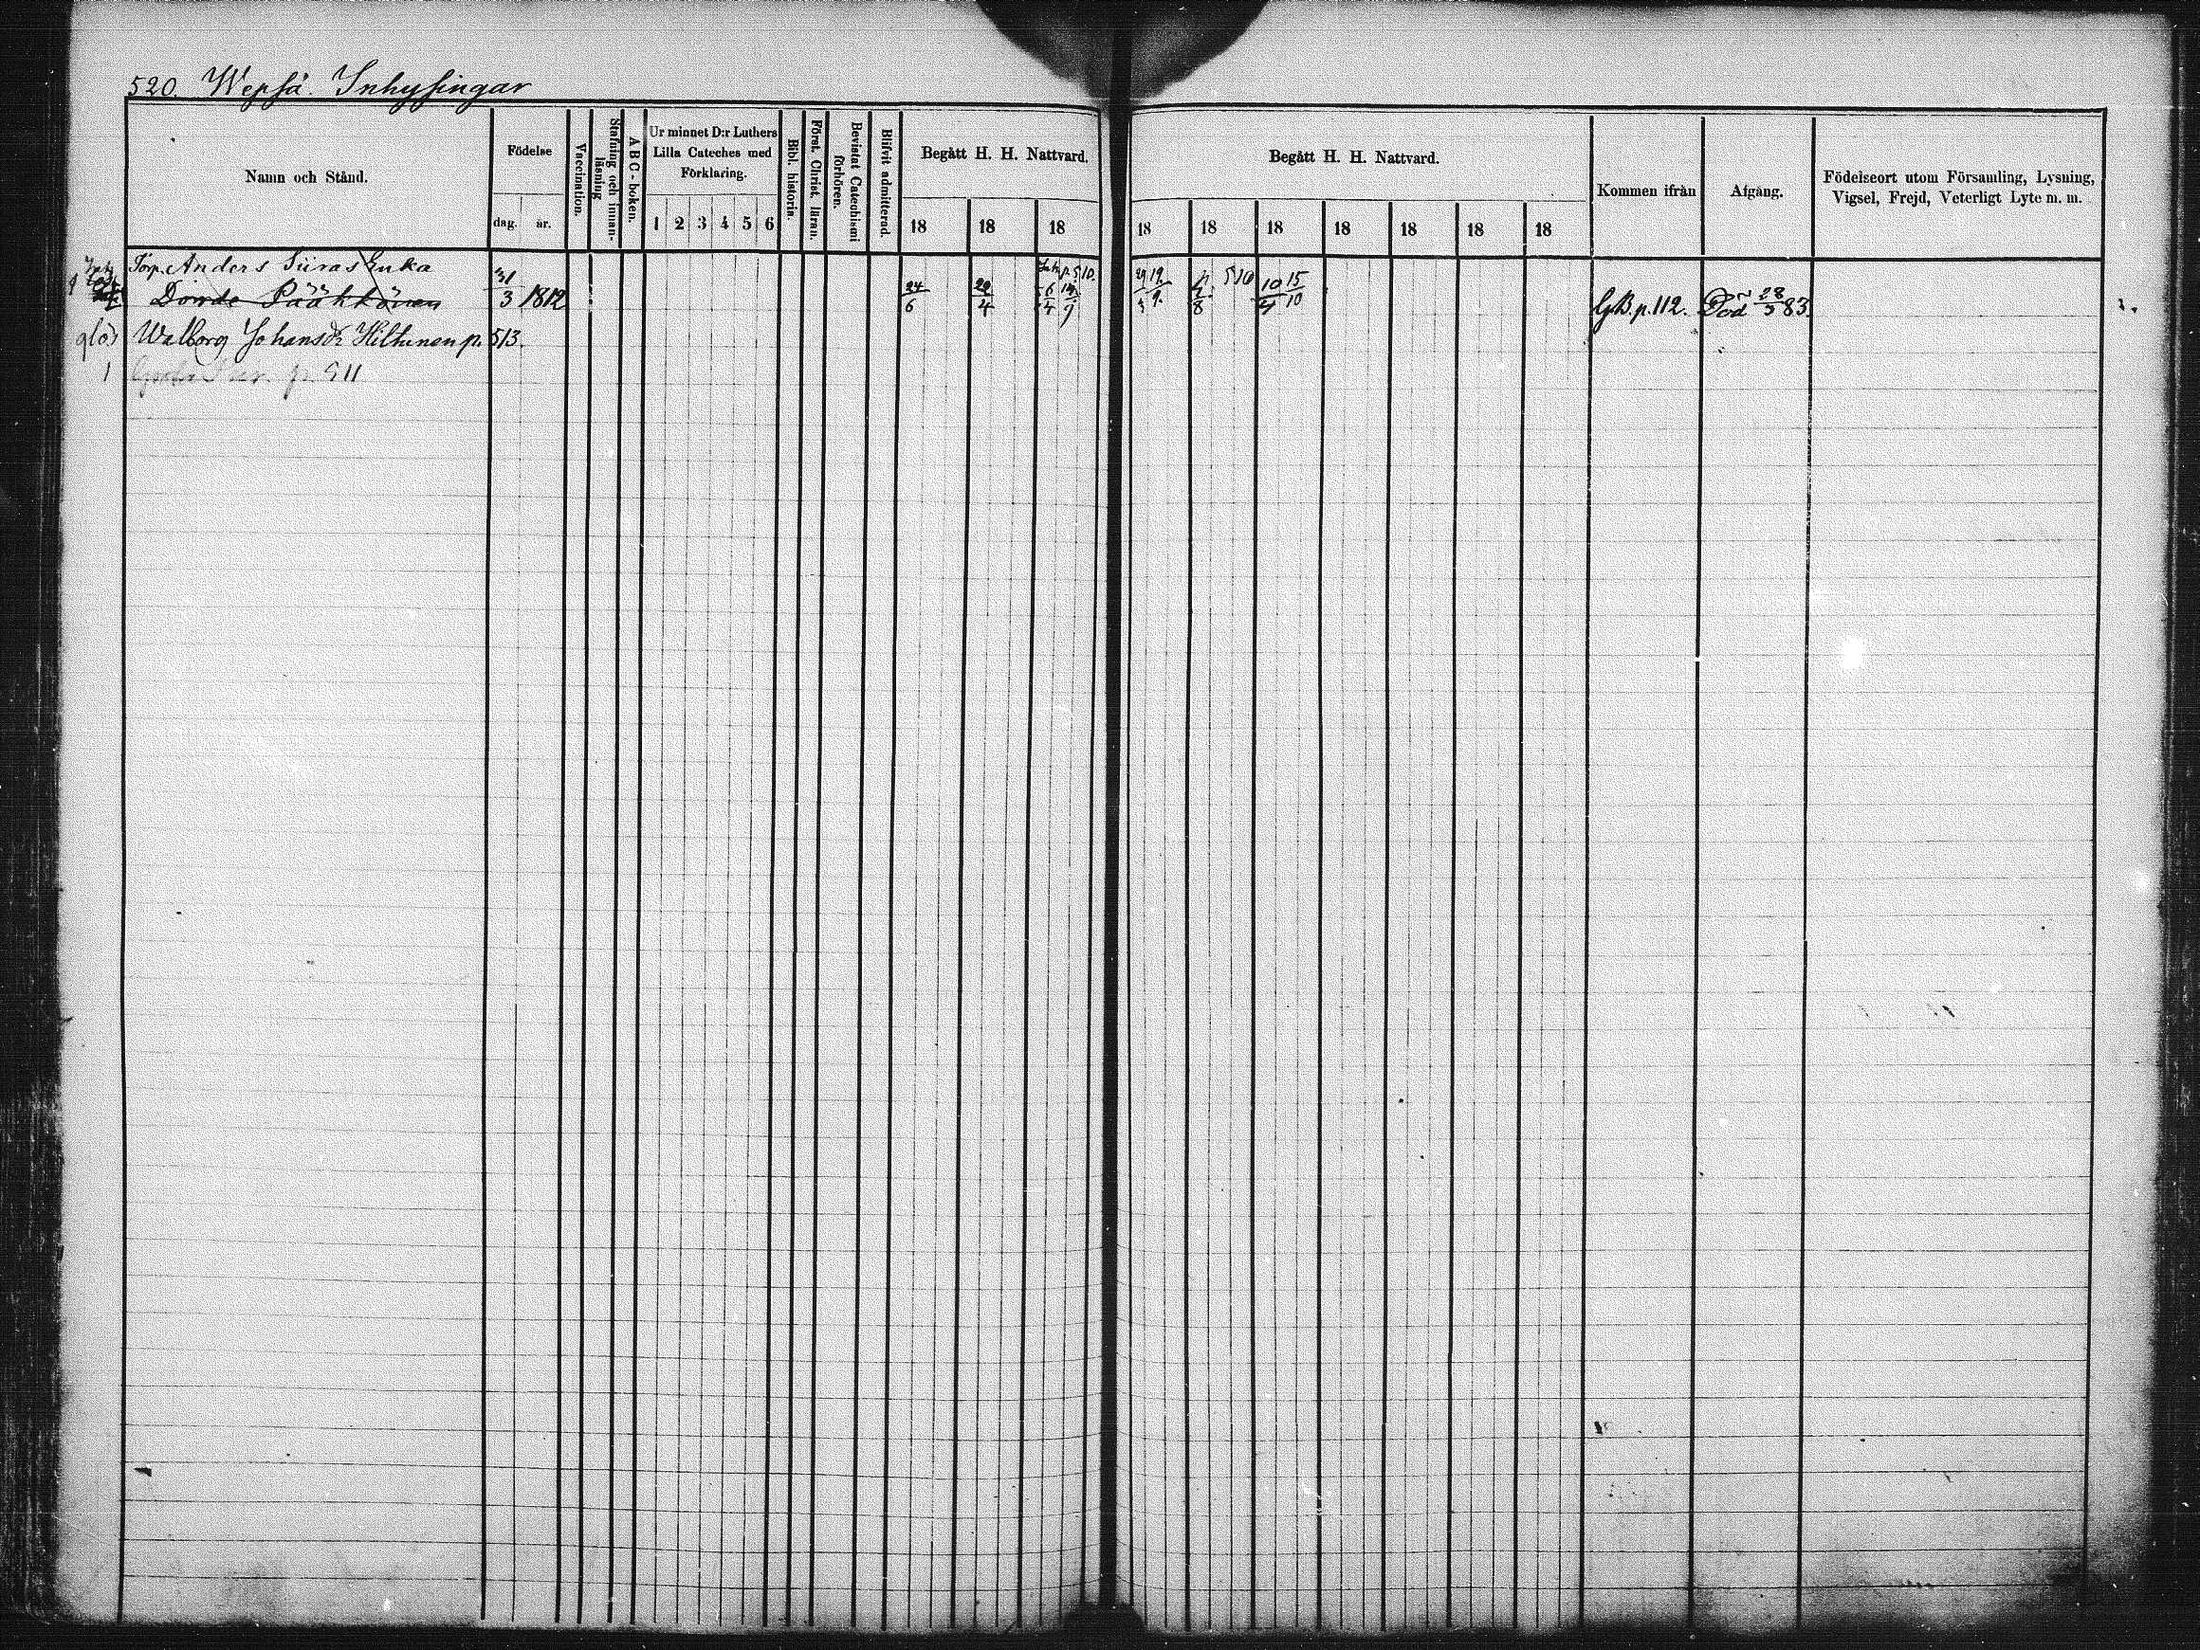 520. Wepsä. Inhysingar
Namn och Stånd.
Födelse
dag. år.
Vaccination.
Stafning och innan-läsning
A B C-boken.
Ur minnet D:r Luthers Lilla Cateches med Förklaring.
1 2 3 4 5 6
Bibl. historia.
Först. Christ. läran.
Bevistat Catechismi förhören.
Blifvit admitterad.
Begått H. H. Nattvard.
18 18 18
Begått H. H. Nattvard.
18 18 18 18 18 18 18
Kommen ifrån
Afgång.
Födelseort utom Församling, Lysning, Vigsel, Frejd, Veterligt Lyte m. m.
Torp. Anders Enka
Dorde Pääkkönen 31/3 1812 24/6 29/4 510 10/4 15/10 GB. p. 112. Död 28/5 83.
Walborg Johansd:r Hiltunen p. 513.
1 p. 511